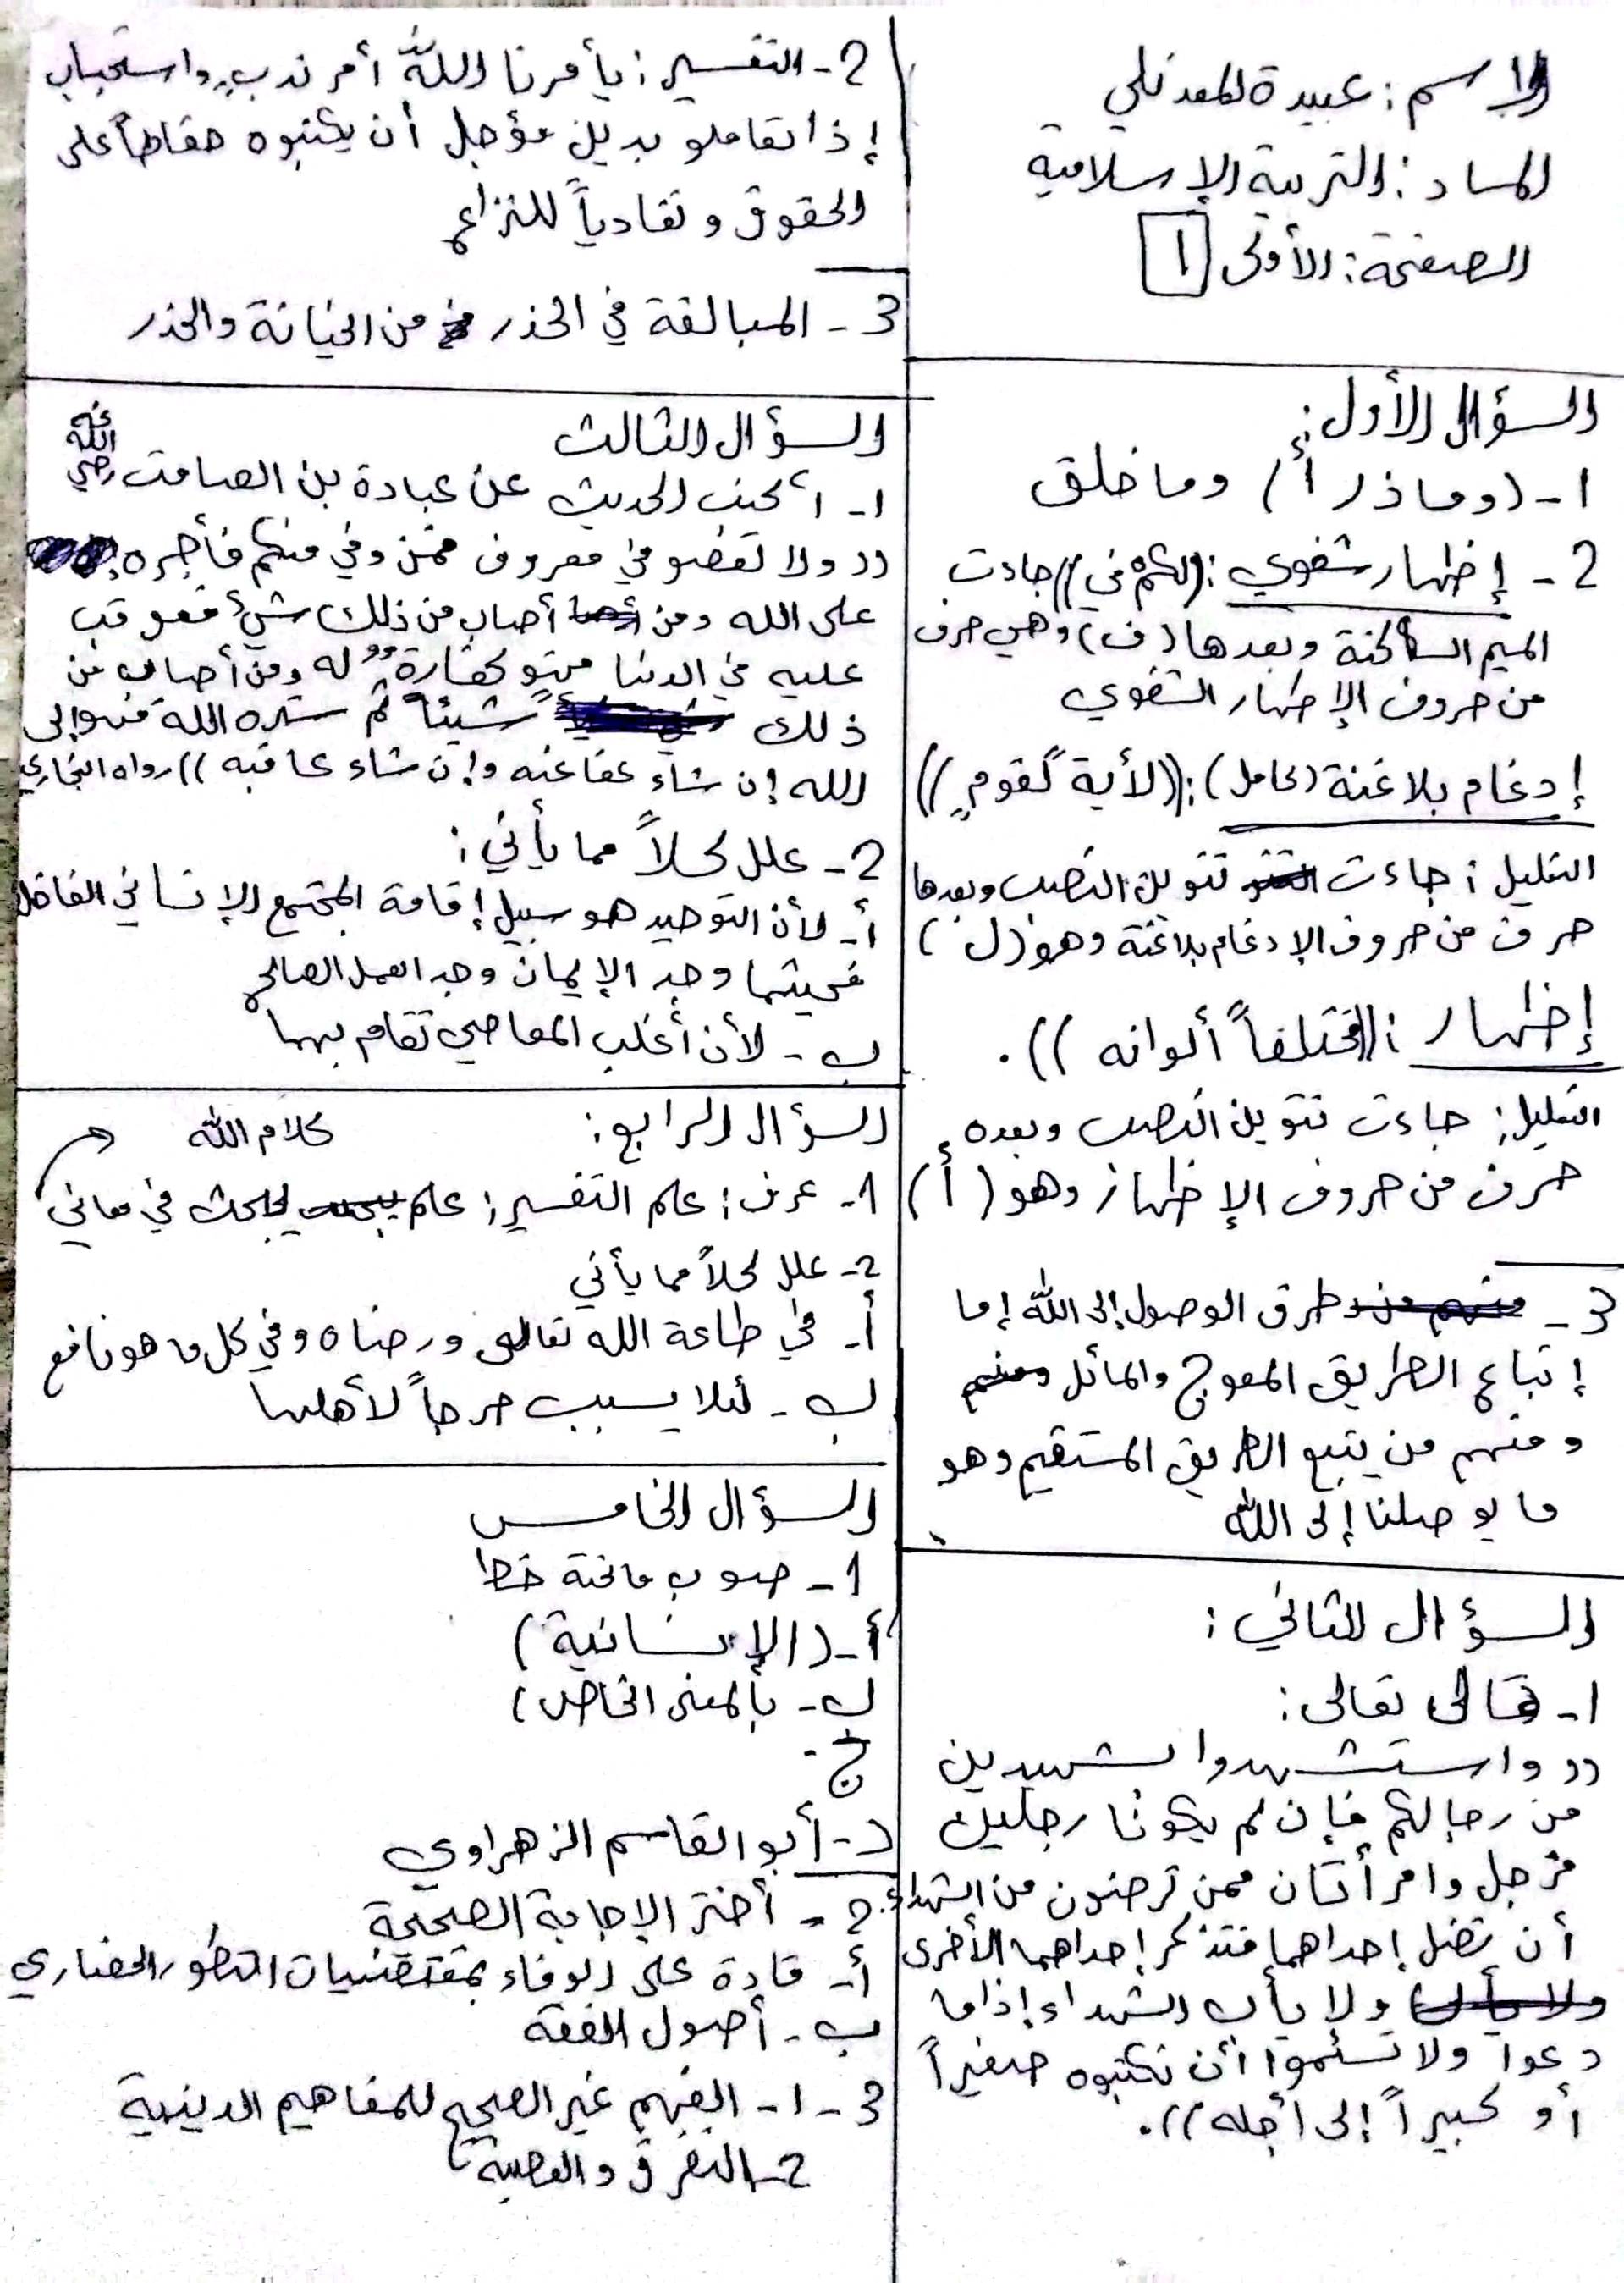 الاسم: عبيدة المعدنلي
المساد: التربية الإسلامية
الصفحة: الأولى 1
السؤال الأول:
1- (وما ذرأ) وما خلق
2- إظهار شفوي: ((لكم في)) جاءت
الميم الساكنة وبعدها (ف) وهي حرف
من حروف الإظهار الشفوي
إدغام بلا غنة (كامل): ((لأية لقومٍ))
التعليل: جاءت تنوين النصب وبعدها
حرف من حروف الإدغام بلا غنة وهو (ل)
إظهار: ((مختلفاً ألوانه)).
التعليل: جاءت تنوين النصب وبعده
حرف من حروف الإظهار وهو (أ)
3- طرق الوصول إلى الله إما
إتباع الطريق المعوج والمائل
ومنهم من يتبع الطريق المستقيم وهو
ما يوصلنا إلى الله
السؤال الثاني:
1- قال تعالى:
((واستشهدوا شهيدين
من رجالكم فإن لم يكونا رجلين
فرجل وامرأتان ممن ترضون من الشهداء
أن تضل إحداهما فتذكر إحداهما الأخرى
ولا يأب الشهداء إذا ما
دعوا ولا تسئموا أن تكتبوه صغيراً
أو كبيراً إلى أجله)).
2- التفسير: يأمرنا الله أمر ندبٍ واستحباب
إذا تعاملو بدين مؤجل أن يكتبوه حفاظاً على
الحقوق وتفادياً للنزاع
3- المبالغة في الحذر من الخيانة والحذر
السؤال الثالث
1- اكتب الحديث عن عبادة بن الصامت رضي الله عنه
((ولا تعصو في معروف فمن وفي منكم فأجره
على الله ومن أصاب من ذلك شيءً فعوقب
عليه في الدنيا فهو كفارةٌ له ومن أصاب من
ذلك شيئاً ثم ستره الله فهو إلى
الله إن شاء عفا عنه وإن شاء عاقبه)) رواه البخاري
2- علل كلاً مما يأتي:
أ- لأن التوحيد هو سبيل إقامة المجتمع الإنساني الفاضل
فحيثما وجد الإيمان وجد العمل الصالح
ب- لأن أغلب المعاصي تقام بهما
السؤال الرابع:
1- عرف: علم التفسير: علم يبحث في معاني كلام الله
2- علل كلاً مما يأتي
أ- في طاعة الله تعالى ورضاه وفي كل ما هو نافع
ب- لئلا يسبب حرجاً لأهلها
السؤال الخامس
1- صوب ما تحته خط
أ- (الإنسانية)
ب- بالمعنى الخاص)
ج-
د- أبو القاسم الزهراوي
2- أختر الإجابة الصحيحة
أ- قادة على الوفاء بمقتضيات التطور الحضاري
ب- أصول الفقه
3- 1- الفهم غير الصحيح للمفاهيم الدينية
2- التفرق والعصبية